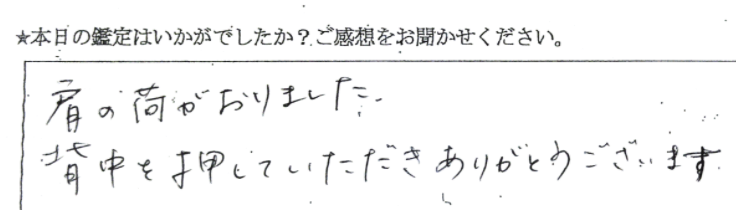 ★本日の鑑定はいかがでしたか？ご感想をお聞かせください。
肩の荷がおりました.
背中を押していただきありがとうございます